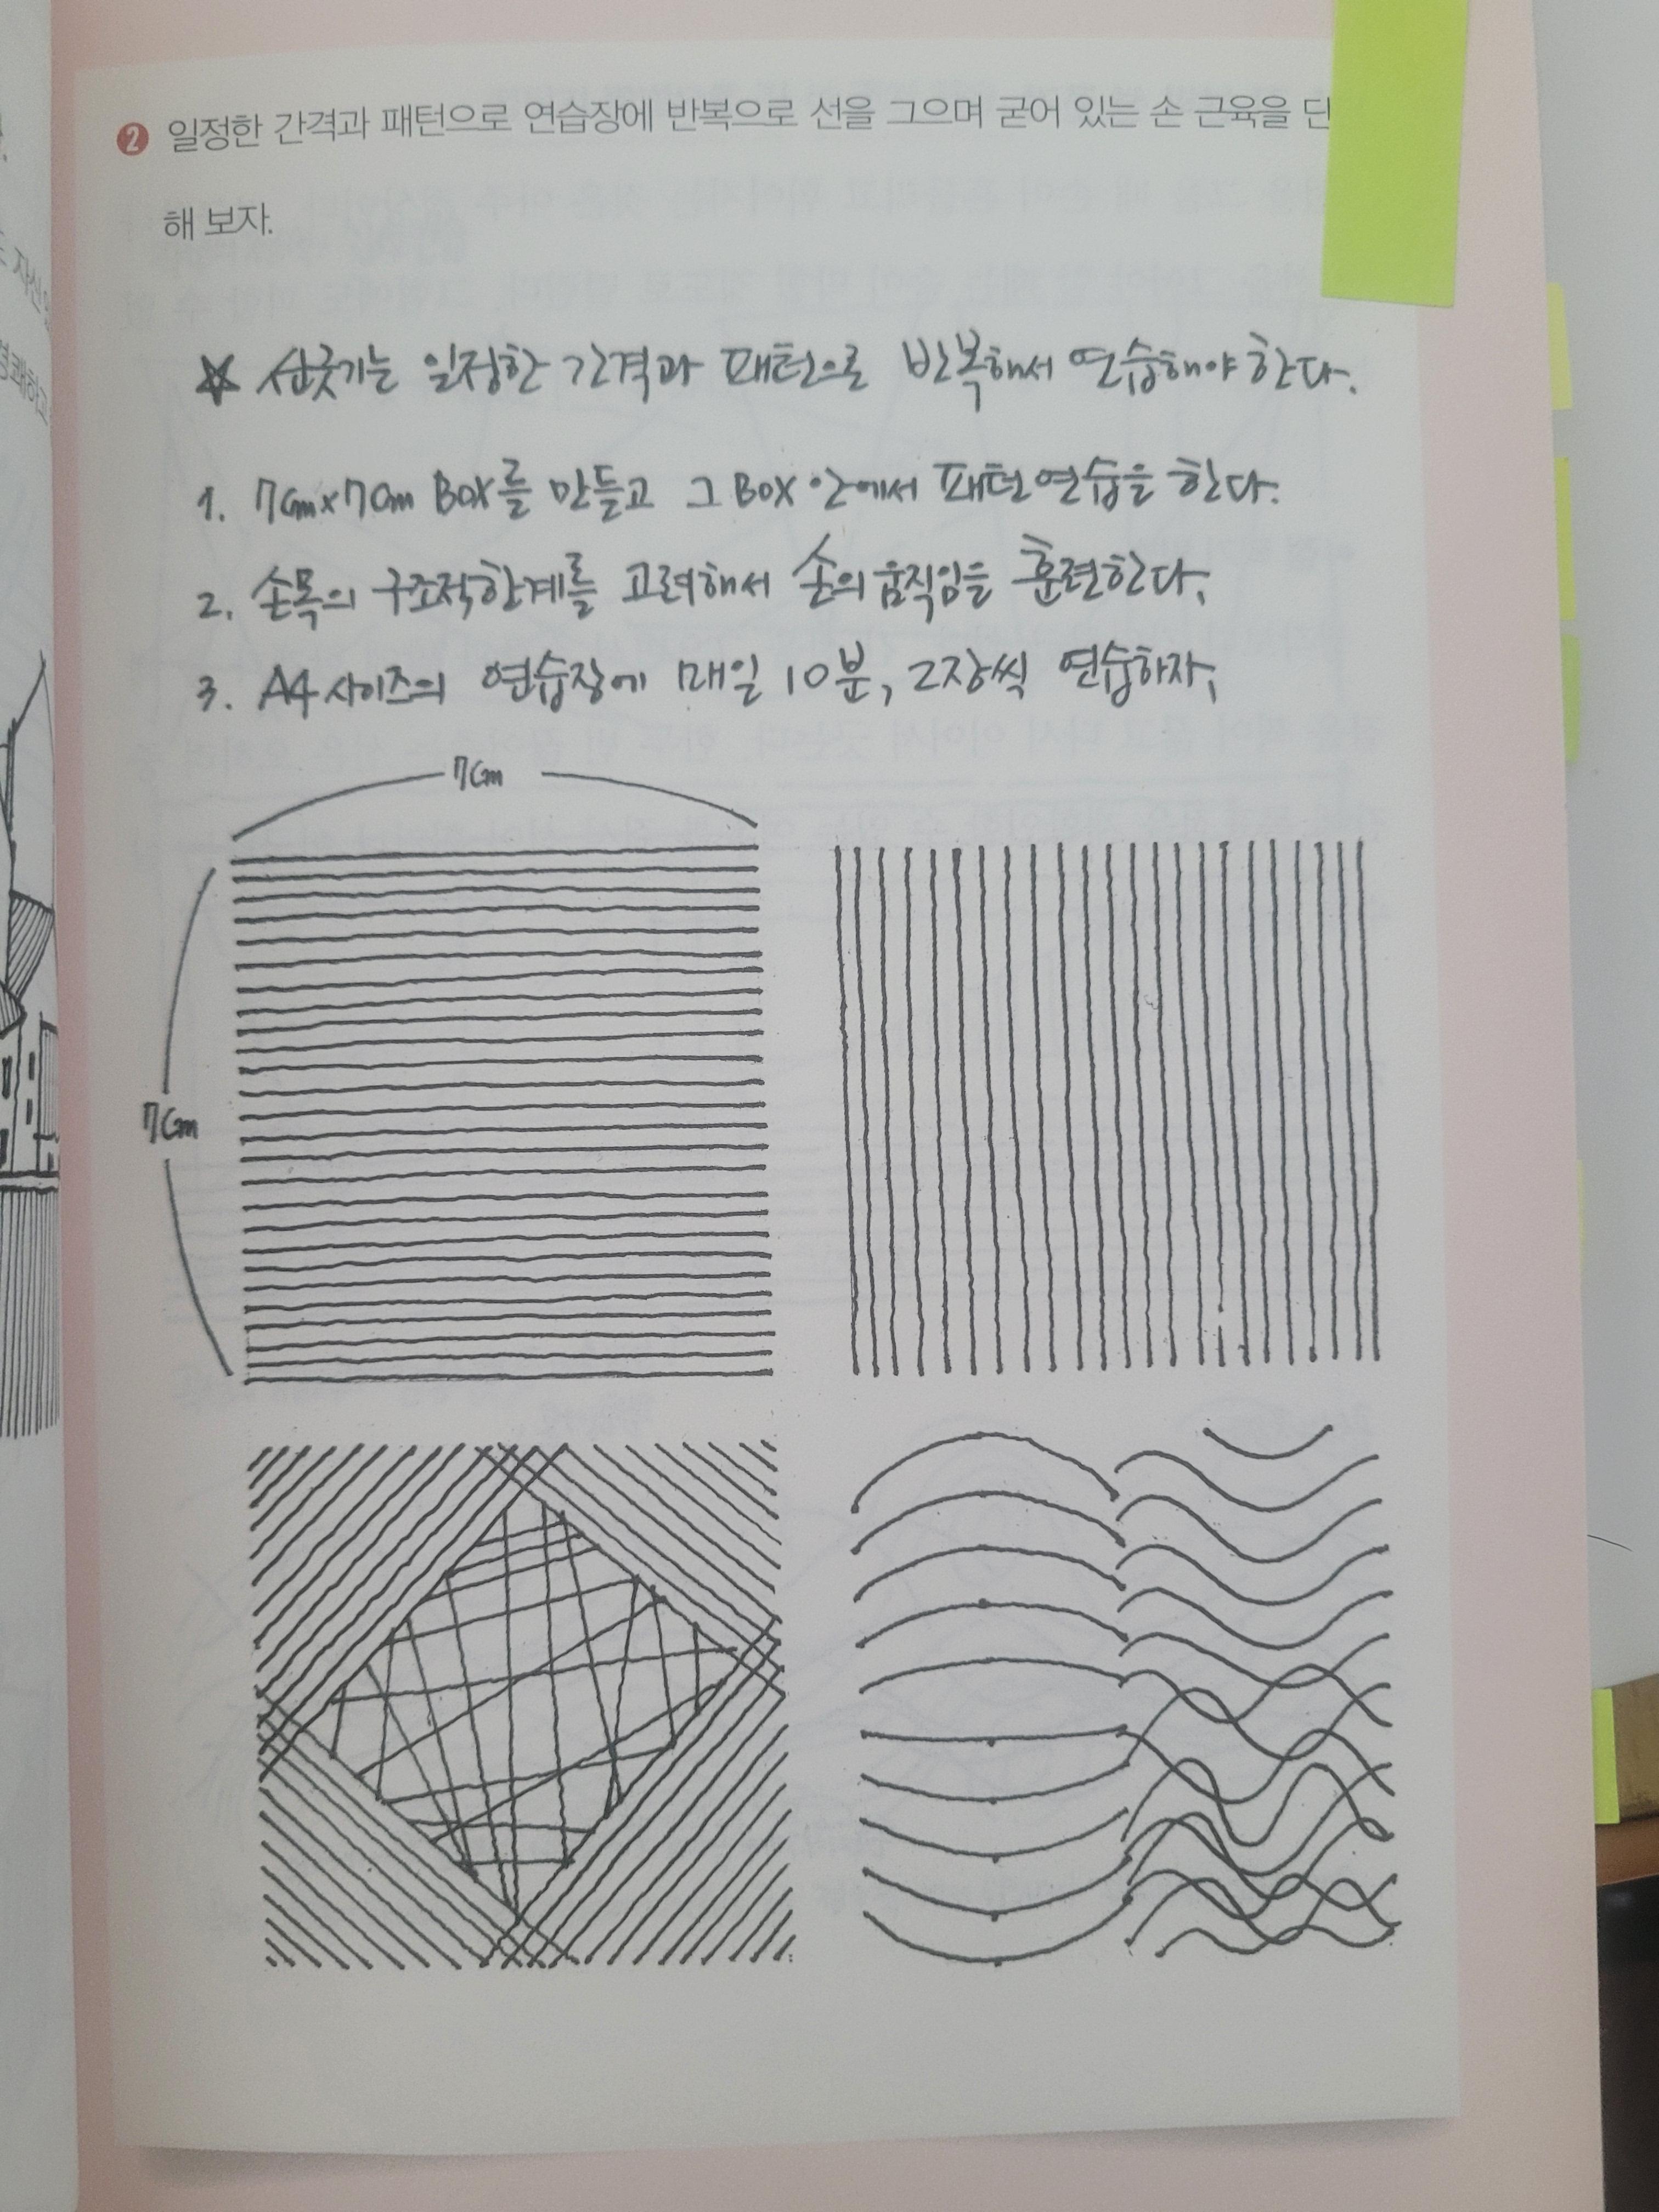 ❷ 일정한 간격과 패턴으로 연습장에 반복으로 선을 그으며 굳어 있는 손 근육을 단
해 보자.
☆ 선긋기는 일정한 간격과 패턴으로 반복해서 연습해야 한다.
1. 7cm×7cm BOX를 만들고 그 BOX 안에서 패턴연습을 한다.
2. 손목의 구조적한계를 고려해서 손의 움직임을 훈련한다.
3. A4 사이즈의 연습장에 매일 10분, 2장씩 연습하자.
7cm
7cm